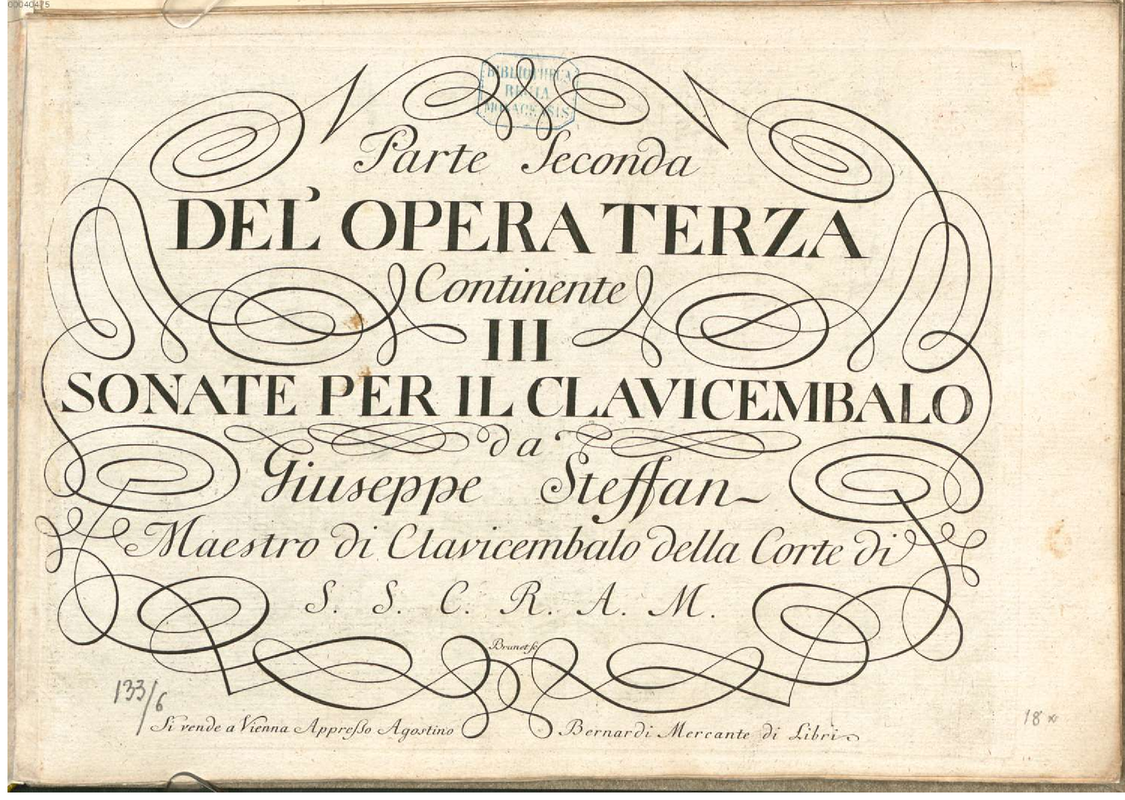 00040475
BIBLIOTHECA
REGIA
MONACENSIS
Parte Seconda
DEL' OPERA TERZA
Continente
III
SONATE PER IL CLAVICEMBALO
da
Giuseppe Steffan
Maestro di Clavicembalo della Corte di
S. S. C. R. A. M.
Brunet sc
133/6
Si vende a Vienna Appresso Agostino Bernardi Mercante di Libri
18x